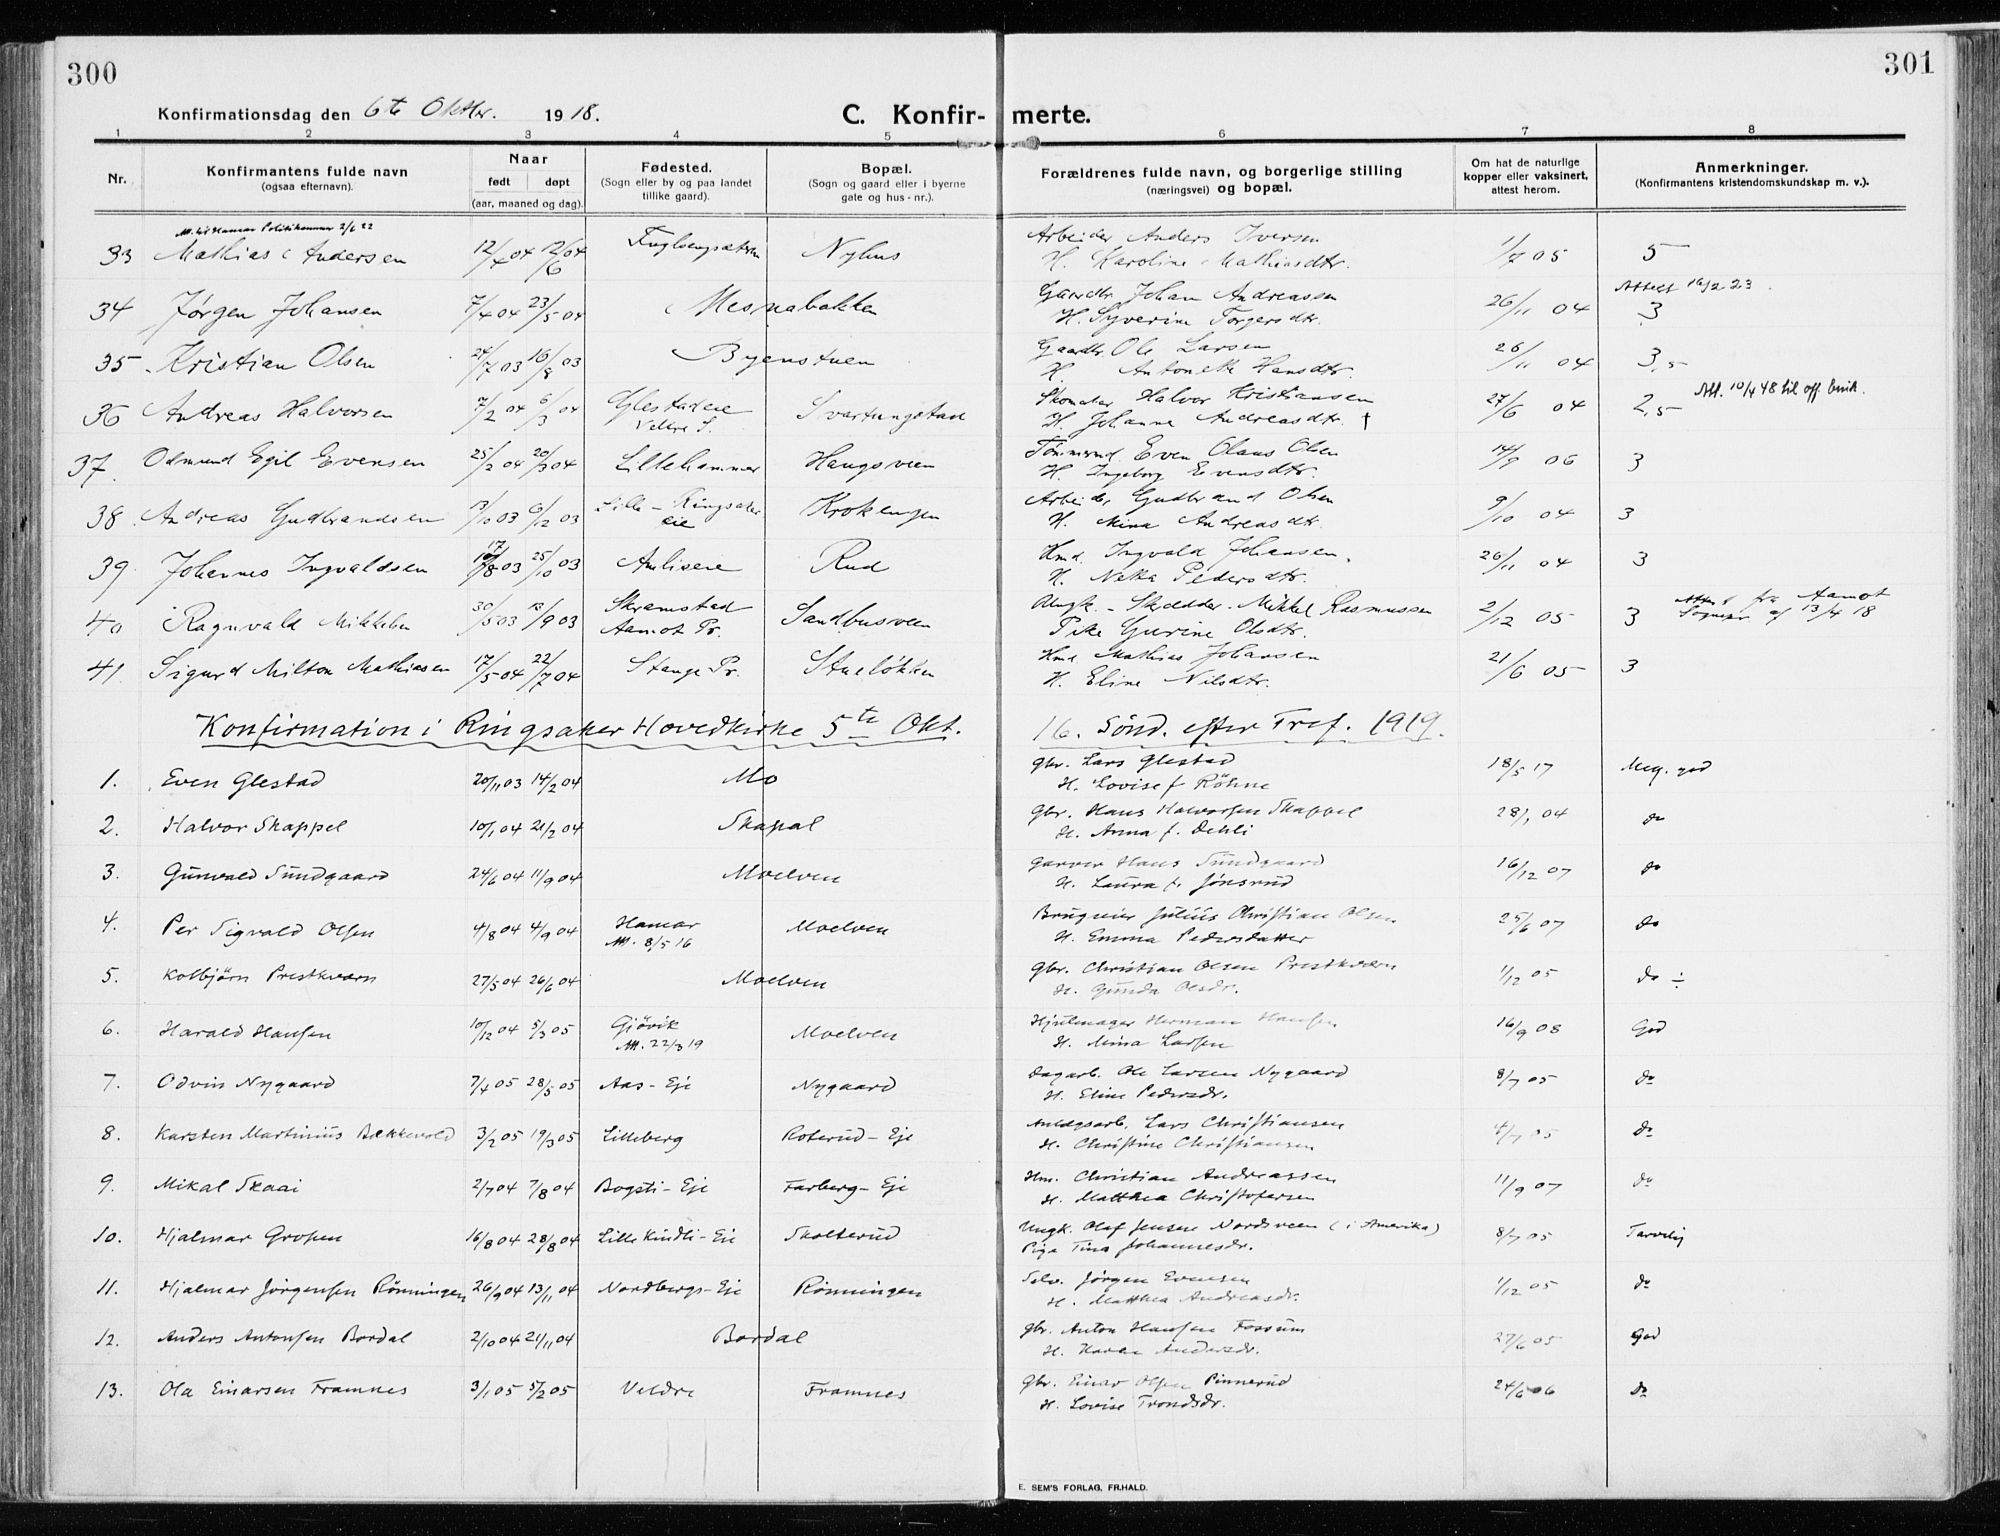 300
301
Konfirmationsdag den 6te Oktbr. 1918.
C. Konfirmerte.
1 2 3 4 5 6 7 8
Nr.
Konfirmantens fulde navn
(ogsaa efternavn).
Naar
født døpt
(aar, maaned og dag).
Fødested.
(Sogn eller by og paa landet
tillike gaard).
Bopæl.
(Sogn og gaard eller i byerne
gate og hus-nr.).
Forældrenes fulde navn, og borgerlige stilling
(næringsvei) og bopæl.
Om hat de naturlige
kopper eller vaksinert,
attest herom.
Anmerkninger.
(Konfirmantens kristendomskundskap m. v.).
Att. til Hamar Politikammer 2/6 22
33 Mathias Andersen 12/4 04 12/6 04 Nyhus Arbeider Anders Iversen 1/7 05 5
H. Karoline Mathiasdtr.
Attest 16/2 23.
34 Jørgen Johansen 7/4 04 23/5 04 Mesnabakken Gaardbr. Johan Andreassen 26/11 04 3
H. Syverine Torgersdtr.
35 Kristian Olsen 24/7 03 16/8 03 Byenstuen Gaardbr. Ole Larsen 26/11 04 3,5
H. Antonette Hansdtr.
36 Andreas Halvorsen 7/2 04 6/3 04 Glestadeie Svartungstad Skomaker Halvor Kristiansen 27/6 04 2,5 Att. 10/4 48 til off. bruk.
Veldre S. H. Johanne Andreasdtr. †
37. Odmund Egil Evensen 25/2 04 20/3 04 Lillehammer Haugsveen Tømmermd. Even Olaus Olsen 14/9 06 3
H. Ingeborg Evensdtr.
38. Andreas Gudbrandsen 13/10 03 6/12 03 Lille-Ringsaker Krokengen Arbeider Gudbrand Olsen 9/10 04 3
eie H. Mina Andreasdtr.
39 Johannes Ingvaldsen 17/8 03 25/10 03 Amlieeie Rud Hmd. Ingvald Johansen. 26/11 04 3
H. Petersdtr.
40 Ragnvald Mikkelsen 30/5 03 13/9 03 Skramstad Sandbusveen Ungk. - Skrædder. Mikkel Rasmussen 2/12 05 3 Attest fra Aamot
Aamot Pr. Pike Gurine Olsdtr. Sognepr. af 13/4 18
41. Sigurd Milton Mathiesen 17/5 04 22/7 04 Stange Pr. Stueløkken Hmd. Mathias Johansen 21/6 05 3
H. Eline Nilsdtr.
Konfirmation i Ringsaker Hovedkirke 5te Okt. 16. Sönd. efter Tref. 1919.
1. Even Glestad 20/11 03 14/2 04 Mo Gbr. Lars Glestad 18/5 17 Meg. god
H. Lovise f. Röhne
2. Halvor Skappel 10/1 04 21/2 04 Skapal Gbr. Hans Halvorsen Skappel 28/1 04 do
H. Anna f. Dehli
3. Gunvald Sundgaard 24/6 04 11/9 04 Moelven Garver Hans Sundgaard 16/12 07 do
H. Laura f. Jönsrud
4. Per Sigvald Olsen 4/8 04 4/9 04 Hamar Moelven Brugseier Julius Christian Olsen 25/6 07 do
Att. 8/5 16 H. Emma Pedersdatter
5. Kolbjörn Prestkværn 27/5 04 26/6 04 Moelven Gbr. Christian Olsen Prestkværn 1/12 05 do ÷
H. Gunda Olsdr.
6. Harald Hansen 10/12 04 5/3 05 Gjövik Moelven Hjulmager Herman Hansen 16/9 08 God
Att. 22/3 19 H. Mina Larsen
7. Odvin Nygaard 7/4 05 28/5 05 Aas-Eje Nygaard Dagarb. Ole Larsen Nygaard 8/7 05 do
H. Eline Pedersdr.
8. Karsten Martinius Bækkevold 3/2 05 19/3 05 Lilleberg Roterud-Eje Anlægsarb. Lars Christiansen 4/7 05 do
H. Christine Christiansen
9. Mikal Skaai 2/7 04 7/8 04 Bogsti-Eje Farberg-Eje Hm. Christian Andreassen 11/9 07 do
H. Matthea Christofersen
10. Hjalmar Gropen 16/8 04 28/8 04 Lille Kindli-Eie Skolterud Ungk. Olaf Jensen Nordsveen (i Amerika) 8/7 05 Tarvelig
Pige Tina Johannesdr.
11. Hjalmar Jörgensen Rönningen 26/9 04 13/11 04 Nordbergs-Eie Rönningen Selv. Jörgen Evensen 1/12 05 do
H. Matthea Andreasdr.
12. Anders Antonsen Bordal 2/10 04 21/11 04 Bordal Gbr. Anton Hansen Fossum 27/6 05 God
H. Karen Andersdr.
13. Ola Einarsen Framnes 3/1 05 5/2 05 Veldre Framnes Gbr. Einar Olsen Pinnerud 24/6 06 do
H. Lovise Trondsdr.
E. SEM'S FORLAG, FR.HALD.